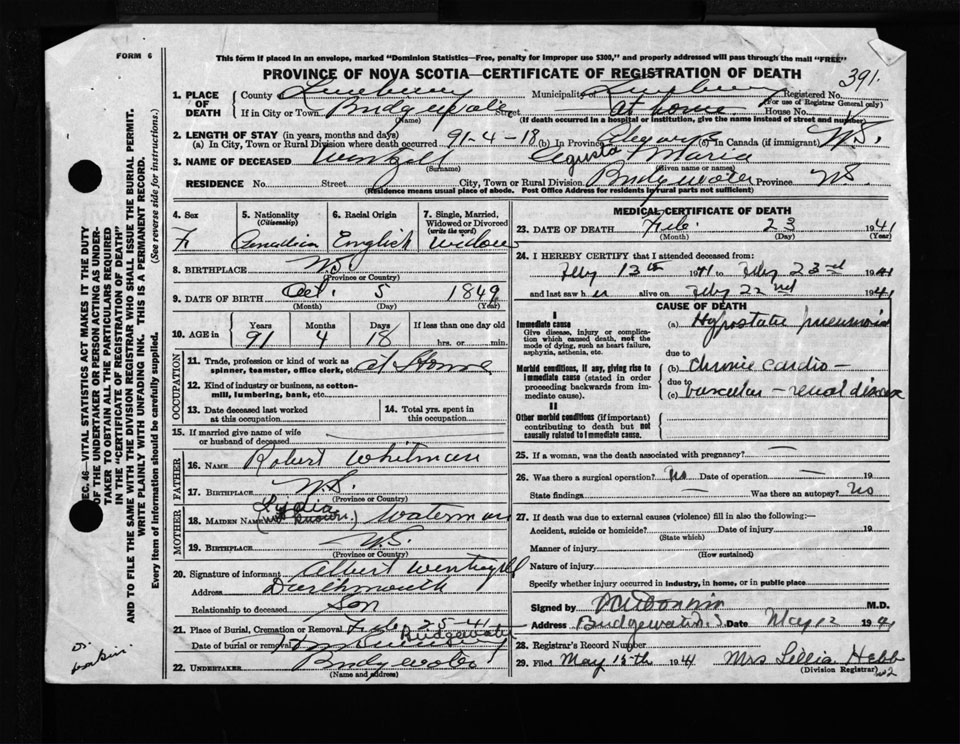 FORM 6
This form if placed in an envelope, marked "Dominion Statistics—Free, penalty for improper use $300," and properly addressed will pass through the mail "FREE"
PROVINCE OF NOVA SCOTIA—CERTIFICATE OF REGISTRATION OF DEATH
391.
1. PLACE OF DEATH County Lunenburg Municipality Lunenburg Registered No.
(For use of Registrar General only)
If in City or Town Bridgewater Street At home House No.
(Name) (If death occurred in a hospital or institution, give the name instead of street and number)
2. LENGTH OF STAY (in years, months and days)
(a) In City, Town or Rural Division where death occurred 91-4-18 (b) In Province Always (c) In Canada (if immigrant) N.S.
3. NAME OF DECEASED Wentzell Agusta Maria
(Surname) (Given name or names)
RESIDENCE No. Street City, Town or Rural Division Bridgewater Province N.S.
(Residence means usual place of abode. Post Office Address for residents in rural parts not sufficient)
4. Sex F
5. Nationality (Citizenship) Canadian
6. Racial Origin English
7. Single, Married, Widowed or Divorced (write the word) Widow
8. BIRTHPLACE N.S.
(Province or Country)
9. DATE OF BIRTH Oct. 5 1849
(Month) (Day) (Year)
10. AGE in Years 91 Months 4 Days 18 If less than one day old
hrs. or min.
OCCUPATION
11. Trade, profession or kind of work as spinner, teamster, office clerk, etc. at Home
12. Kind of industry or business, as cotton-mill, lumbering, bank, etc.
13. Date deceased last worked at this occupation
14. Total yrs. spent in this occupation
15. If married give name of wife or husband of deceased
FATHER
16. NAME Robert Whitman
17. BIRTHPLACE N.S.
(Province or Country)
MOTHER
18. MAIDEN NAME Lydia (not known) Waterman
19. BIRTHPLACE N.S.
(Province or Country)
20. Signature of informant Albert Wentzell
Address Dartmouth
Relationship to deceased Son
21. Place of Burial, Cremation or Removal Bridgewater
Date of burial or removal Feb 25-41
22. UNDERTAKER Bridgewater
(Name and address)
MEDICAL CERTIFICATE OF DEATH
23. DATE OF DEATH Feb. 23 1941
(Month) (Day) (Year)
24. I HEREBY CERTIFY that I attended deceased from:
Feby 13th 1941 to Feby 23rd 1941
and last saw her alive on Feby 22nd 1941
CAUSE OF DEATH
I
Immediate cause
Give disease, injury or complication which caused death, not the mode of dying, such as heart failure, asphyxia, asthenia, etc.
(a) Hypostatic pneumonia
due to
Morbid conditions, if any, giving rise to immediate cause (stated in order proceeding backwards from immediate cause).
(b) Chronic cardio-
due to
(c) vascular-renal disease
II
Other morbid conditions (if important) contributing to death but not causally related to immediate cause.
25. If a woman, was the death associated with pregnancy?
26. Was there a surgical operation? No Date of operation 19
State findings Was there an autopsy? No
27. If death was due to external causes (violence) fill in also the following:—
Accident, suicide or homicide? Date of injury 19
(State which)
Manner of injury
(How sustained)
Nature of injury
Specify whether injury occurred in industry, in home, or in public place
Signed by M.D.
Address Bridgewater N.S. Date May 12 1941
28. Registrar's Record Number
29. Filed May 15th 1941 Mrs Lellia Hebb
(Division Registrar)
SEC. 46—VITAL STATISTICS ACT MAKES IT THE DUTY OF THE UNDERTAKER OR PERSON ACTING AS UNDERTAKER TO OBTAIN ALL THE PARTICULARS REQUIRED IN THE "CERTIFICATE OF REGISTRATION OF DEATH" AND TO FILE THE SAME WITH THE DIVISION REGISTRAR WHO SHALL ISSUE THE BURIAL PERMIT.
WRITE PLAINLY WITH UNFADING INK. THIS IS A PERMANENT RECORD.
Every item of Information should be carefully supplied. (See reverse side for instructions.)